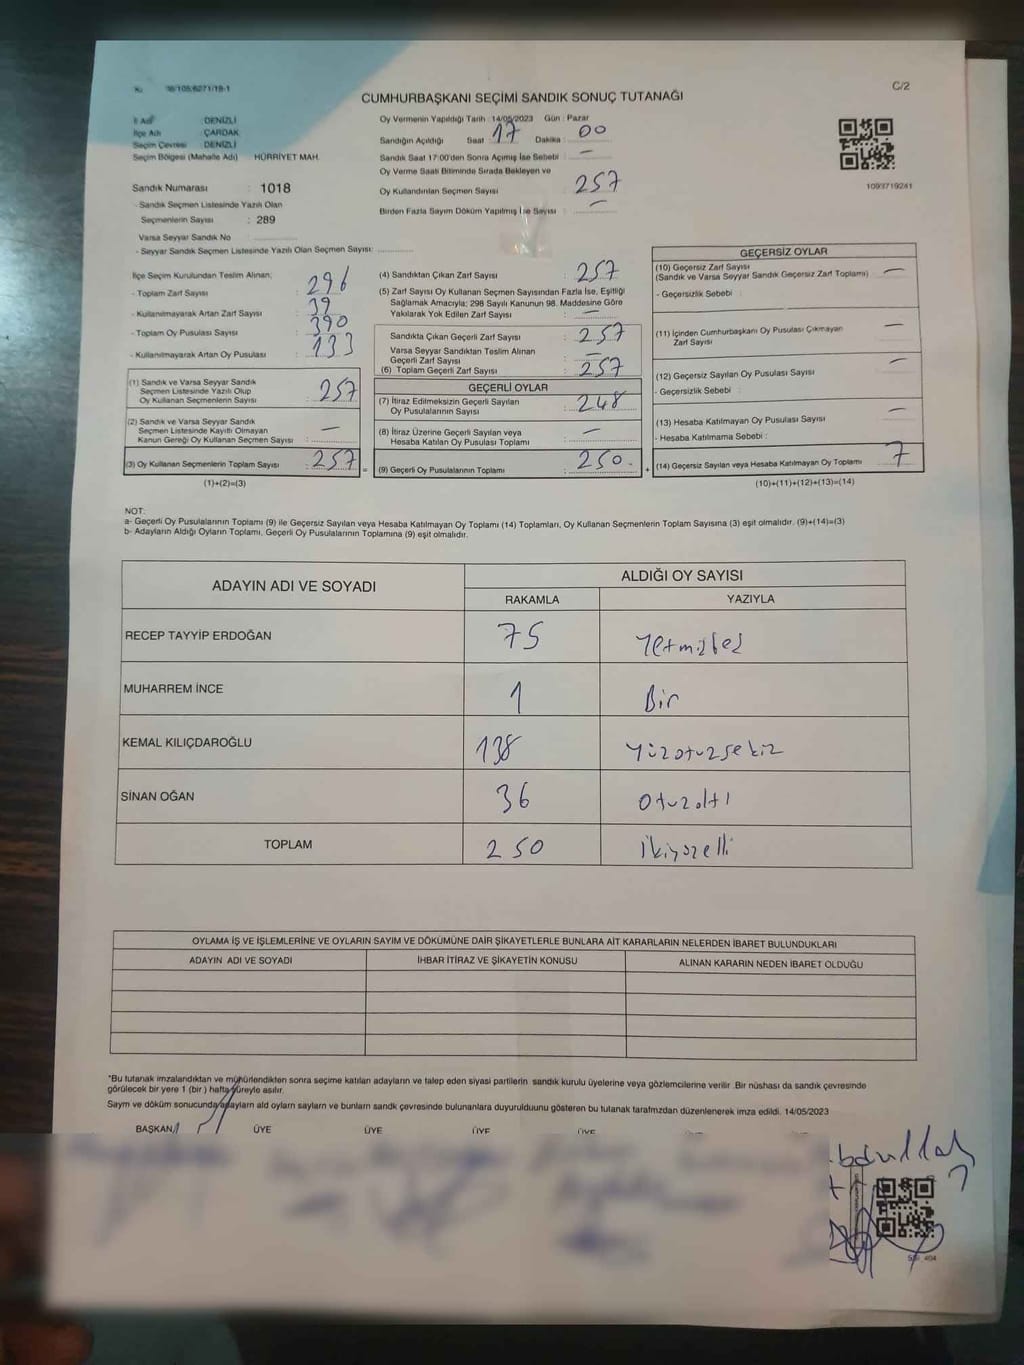 CUMHURBAŞKANI SEÇİMİ SANDIK SONUÇ TUTANAĞI
C/2
İl Adı DENİZLİ
İlçe Adı : ÇARDAK
Seçim Çevresi DENİZLİ
Seçim Bölgesi (Mahalle Adı) HÜRRİYET MAH.
Sandık Numarası : 1018
- Sandık Seçmen Listesinde Yazılı Olan
Seçmenlerin Sayısı : 289
Varsa Seyyar Sandık No
- Seyyar Sandık Seçmen Listesinde Yazılı Olan Seçmen Sayısı:
Oy Vermenin Yapıldığı Tarih : 14/05/2023 Gün : Pazar
Sandığın Açıldığı Saat 17 Dakika : 00
Sandık Saat 17:00'den Sonra Açımış İse Sebebi : —
Oy Verme Saati Bitiminde Sırada Bekleyen ve
Oy Kullandırılan Seçmen Sayısı 257
Birden Fazla Sayım Döküm Yapılmış İse Sayısı : —
1093719241
İlçe Seçim Kurulundan Teslim Alınan;
- Toplam Zarf Sayısı : 296
- Kullanılmayarak Artan Zarf Sayısı : 39
- Toplam Oy Pusulası Sayısı : 390
- Kullanılmayarak Artan Oy Pusulası : 133
(1) Sandık ve Varsa Seyyar Sandık
Seçmen Listesinde Yazılı Olup
Oy Kullanan Seçmenlerin Sayısı : 257
(2) Sandık ve Varsa Seyyar Sandık
Seçmen Listesinde Kayıtlı Olmayan
Kanun Gereği Oy Kullanan Seçmen Sayısı : —
(3) Oy Kullanan Seçmenlerin Toplam Sayısı : 257
(1)+(2)=(3)
(4) Sandıktan Çıkan Zarf Sayısı : 257
(5) Zarf Sayısı Oy Kullanan Seçmen Sayısından Fazla İse, Eşitliği
Sağlamak Amacıyla; 298 Sayılı Kanunun 98. Maddesine Göre
Yakılarak Yok Edilen Zarf Sayısı : —
Sandıkta Çıkan Geçerli Zarf Sayısı : 257
Varsa Seyyar Sandıktan Teslim Alınan
Geçerli Zarf Sayısı : —
(6) Toplam Geçerli Zarf Sayısı : 257
GEÇERLİ OYLAR
(7) İtiraz Edilmeksizin Geçerli Sayılan
Oy Pusulalarının Sayısı : 248
(8) İtiraz Üzerine Geçerli Sayılan veya
Hesaba Katılan Oy Pusulası Toplamı : —
= (9) Geçerli Oy Pusulalarının Toplamı : 250.
GEÇERSİZ OYLAR
(10) Geçersiz Zarf Sayısı
(Sandık ve Varsa Seyyar Sandık Geçersiz Zarf Toplamı) —
- Geçersizlik Sebebi :
(11) İçinden Cumhurbaşkanı Oy Pusulası Çıkmayan
Zarf Sayısı —
(12) Geçersiz Sayılan Oy Pusulası Sayısı —
- Geçersizlik Sebebi :
(13) Hesaba Katılmayan Oy Pusulası Sayısı —
- Hesaba Katılmama Sebebi :
+ (14) Geçersiz Sayılan veya Hesaba Katılmayan Oy Toplamı 7
(10)+(11)+(12)+(13)=(14)
NOT:
a- Geçerli Oy Pusulalarının Toplamı (9) ile Geçersiz Sayılan veya Hesaba Katılmayan Oy Toplamı (14) Toplamları, Oy Kullanan Seçmenlerin Toplam Sayısına (3) eşit olmalıdır. (9)+(14)=(3)
b- Adayların Aldığı Oyların Toplamı, Geçerli Oy Pusulalarının Toplamına (9) eşit olmalıdır.
ADAYIN ADI VE SOYADI ALDIĞI OY SAYISI
RAKAMLA YAZIYLA
RECEP TAYYİP ERDOĞAN 75 Yetmişbeş
MUHARREM İNCE 1 Bir
KEMAL KILIÇDAROĞLU 138 Yüzotuzsekiz
SİNAN OĞAN 36 Otuzaltı
TOPLAM 250 İkiyüzelli
OYLAMA İŞ VE İŞLEMLERİNE VE OYLARIN SAYIM VE DÖKÜMÜNE DAİR ŞİKAYETLERLE BUNLARA AİT KARARLARIN NELERDEN İBARET BULUNDUKLARI
ADAYIN ADI VE SOYADI İHBAR İTİRAZ VE ŞİKAYETİN KONUSU ALINAN KARARIN NEDEN İBARET OLDUĞU
*Bu tutanak imzalandıktan ve mühürlendikten sonra seçime katılan adayların ve talep eden siyasi partilerin sandık kurulu üyelerine veya gözlemcilerine verilir .Bir nüshası da sandık çevresinde
görülecek bir yere 1 (bir ) hafta süreyle asılır.
Sayım ve döküm sonucunda adayların ald oyların sayların ve bunların sandk çevresinde bulunanlara duyurulduunu gösteren bu tutanak tarafmzdan düzenlenerek imza edildi. 14/05/2023
BAŞKAN ÜYE ÜYE ÜYE ÜYE